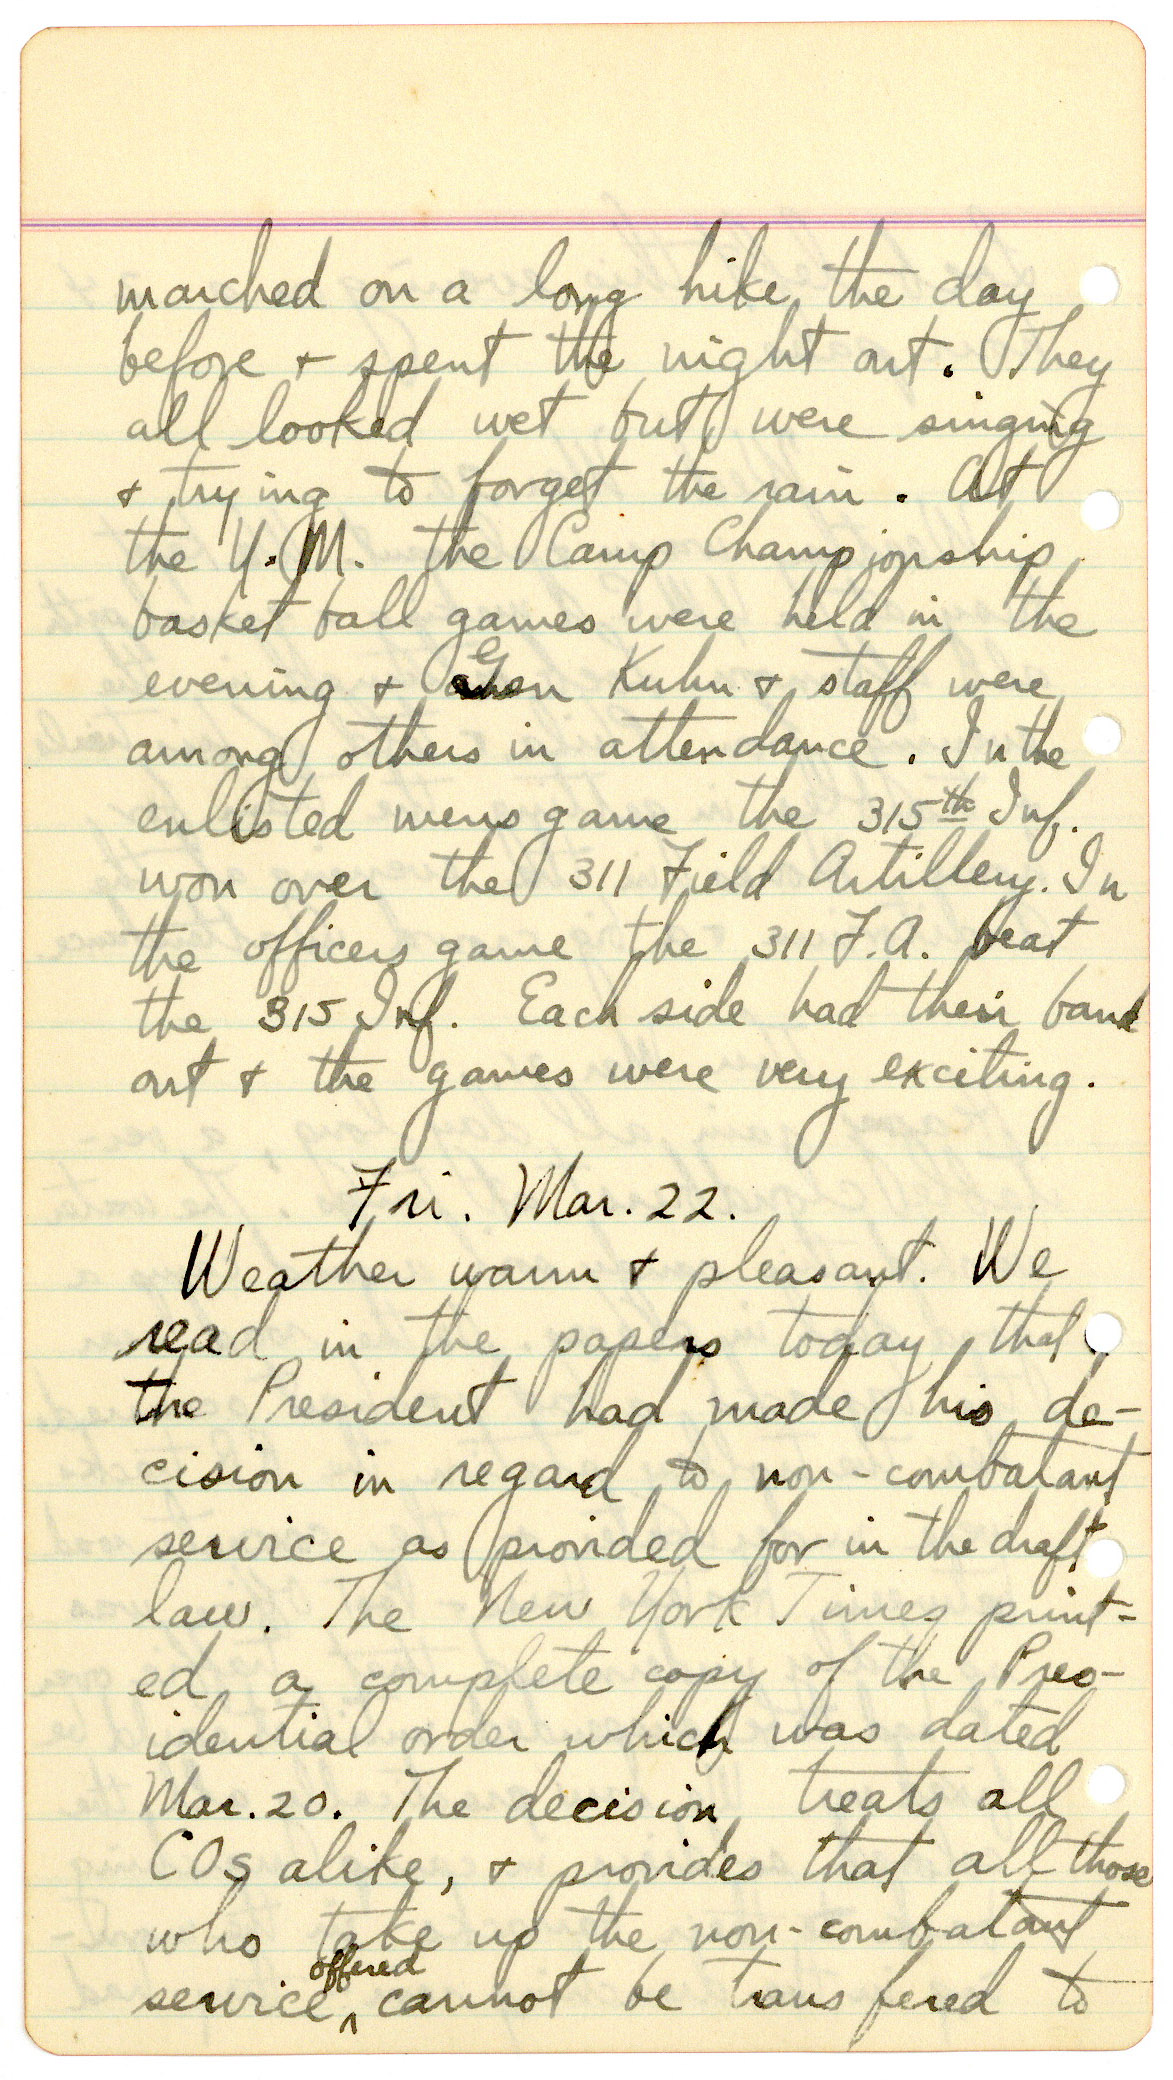 marched on a long hike the day
before + spent the night out. They
all looked wet but were singing
+ trying to forget the rain. At
the Y.M. the Camp Championship
basket ball games were held in the
evening + Gen Kuhn + staff were
among others in attendance. In the
enlisted mens game the 315th Inf.
won over the 311 Field Artillery. In
the officers game the 311 F.A. beat
the 315 Inf. Each side had their band
out + the games were very exciting.
Fri. Mar. 22.
Weather warm + pleasant. We
read in the papers today that
the President had made his de-
cision in regard to non-combatant
service as provided for in the draft
law. The New York Times print-
ed a complete copy of the Pres-
idential order which was dated
Mar. 20. The decision treats all
COs alike, + provides that all those
who take up the non-combatant
service offered cannot be transfered to